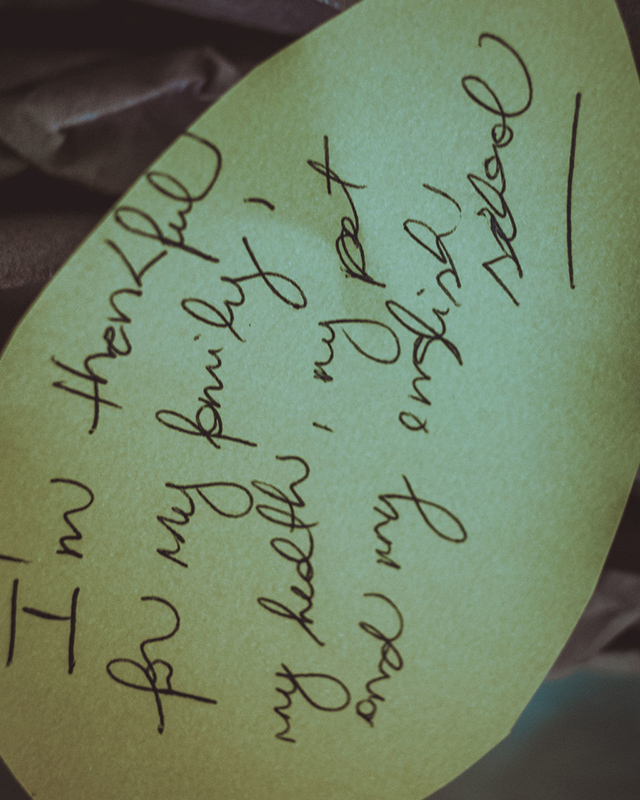 I'm thankful
for my family,
my health, my pet
and my english,
school